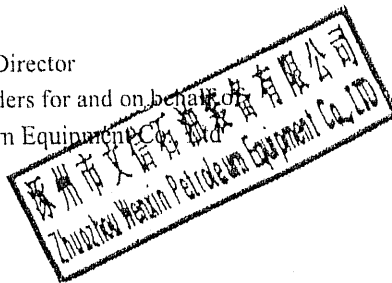 Director
ders for and on behalf of
m Equipment Co., Ltd
涿州市文信石油装备有限公司
Zhuozhou Wenxin Petroleum Equipment Co., LTD